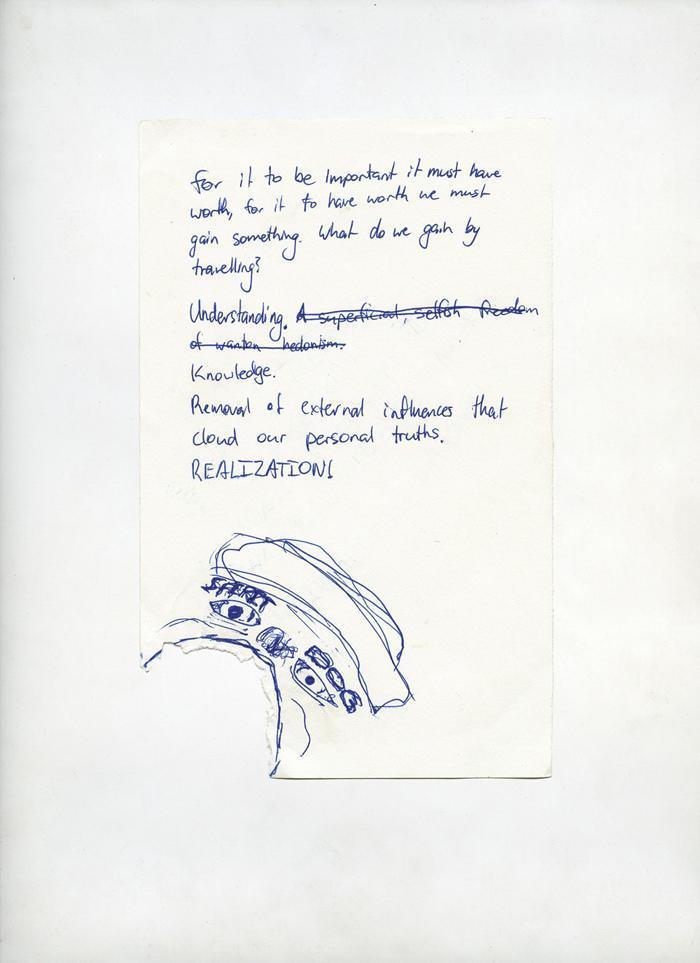 for it to be important it must have
worth, for it to have worth we must
gain something. What do we gain by
travelling?
Understanding. A superficial, selfish freedom
of wanton hedonism.
Knowledge.
Removal of external influences that
cloud our personal truths.
REALIZATION!
DOG